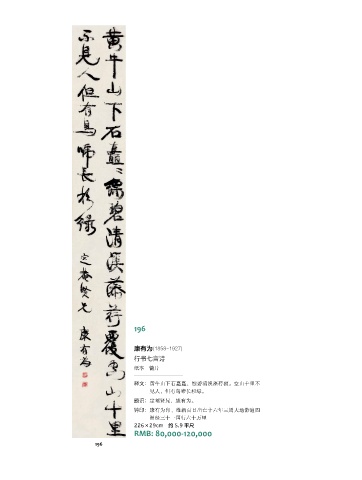 黄牛山下石矗矗绿碧清溪荇覆空山十里
不见人但有鸟啼长松绿
康有为
196
康有为(1858-1927)
行书七言诗
纸本 镜片
释文：黄牛山下石矗矗，
不见人，但有鸟啼长松绿。
款识：康有为。
钤印：康有为印、维新百日出亡十六年三周大地游遍四
洲经三十一国行六十万里
226×29cm 约 5.9 平尺
RMB: 80,000-120,000
196